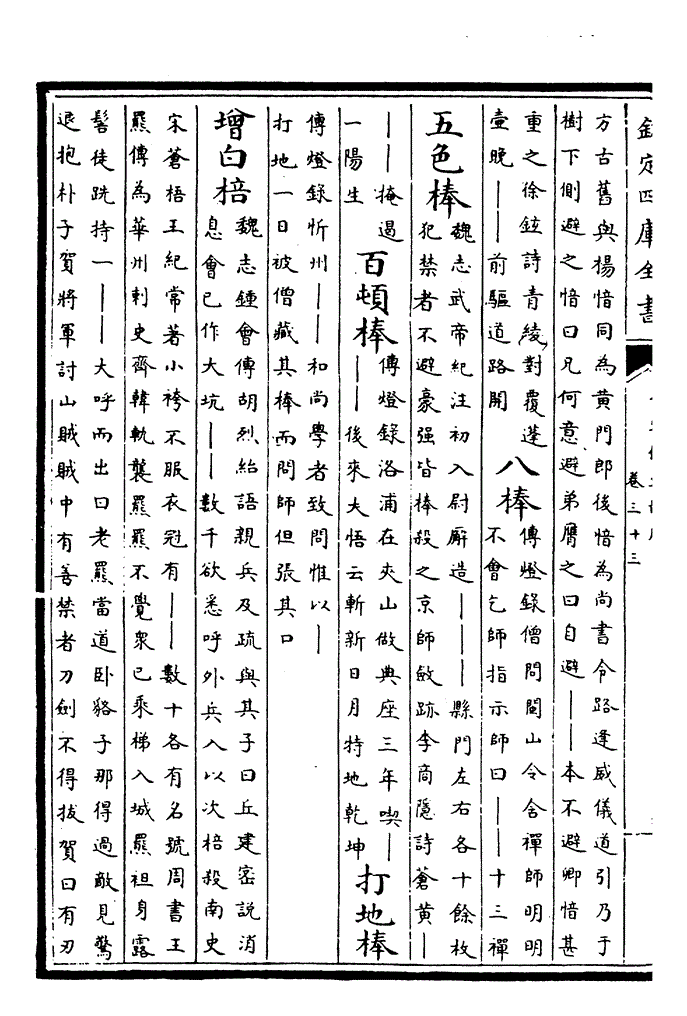 欽定四庫全書
卷三十三
方古舊與楊愔同為黄門郎後愔為尚書令路逢威儀道引乃于
樹下側避之愔曰凡何意避弟膺之曰自避——本不避卿愔甚
重之徐鉉詩青綾對覆蓬
壺晚——前驅道路開
八棒
傳燈錄僧問閩山令含禪師明明
不會乞師指示師曰——十三禪
五色棒
魏志武帝紀注初入尉廨造———縣門左右各十餘枚
犯禁者不避豪强皆棒殺之京師斂跡李商隱詩蒼黄—
——掩遏
一陽生
百頓棒
傳燈錄洛浦在夾山做典座三年喫—
——後來大悟云斬新日月特地乾坤
打地棒
傳燈錄忻州——和尚學者致問惟以—
打地一日被僧藏其棒而問師但張其口
增白棓
魏志鍾會傳胡烈紿語親兵及疏與其子曰丘建密説消
息會已作大坑——數千欲悉呼外兵入以次棓殺南史
宋蒼梧王紀常著小袴不服衣冠有——數十各有名號周書王
羆傳為華州刺史齊韓軌襲羆羆不覺衆已乘梯入城羆袒身露
髻徒跣持一——大呼而出曰老羆當道卧貉子那得過敵見驚
退抱朴子賀將軍討山賊賊中有善禁者刀劍不得拔賀曰有刃